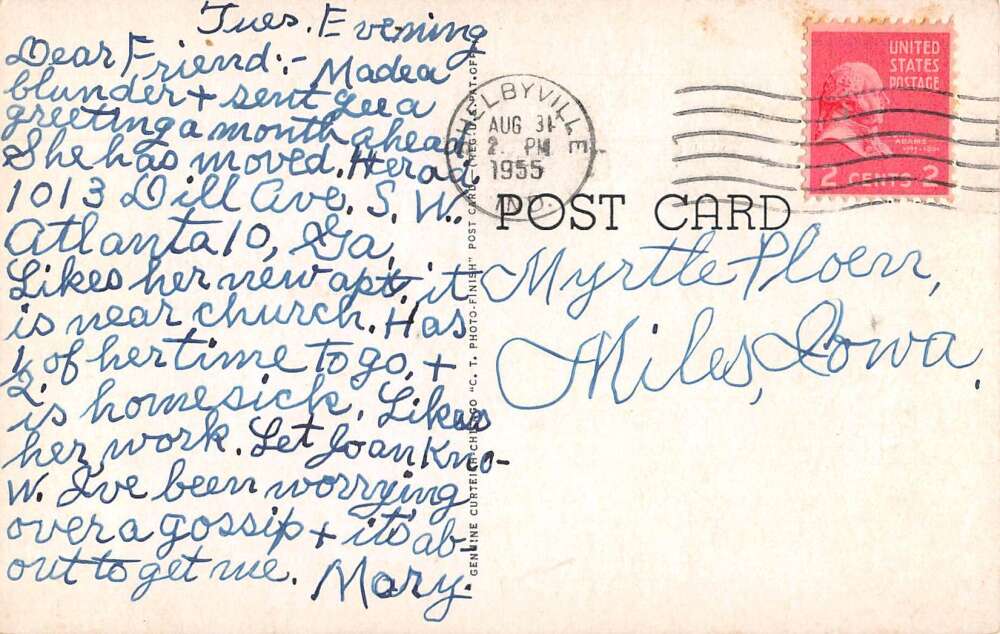 Tues. Evening
Dear Friend:- Made a
blunder + sent you a
greeting a month ahead.
She has moved. Her ad.
1013 Dill Ave. S. W.
Atlanta 10, Ga.
Likes her new apt, it
is near church. Has
1/2 of her time to go, +
is homesick. Likes
her work. Let Joan kno-
w. I've been worrying
over a gossip + it's ab-
out to get me. Mary.
GENUINE CURTEICH-CHICAGO "C. T. PHOTO-FINISH" POST CARD (REG. U.S. PAT. OFF.)
SHELBYVILLE
AUG 31
2 PM
1955
IND.
UNITED
STATES
POSTAGE
ADAMS
2 CENTS 2
POST CARD
Myrtle Ploen,
Miles, Iowa.